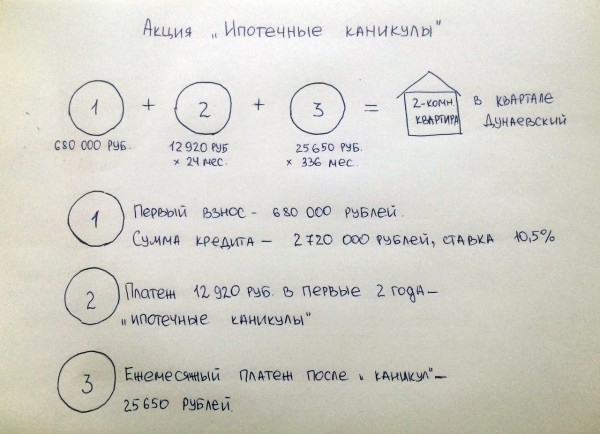 Акция „Ипотечные каникулы"
1 + 2 + 3 = 2-комн. квартира в квартале Дунаевский
680 000 руб. 12 920 руб × 24 мес. 25 650 руб. × 336 мес.
1 Первый взнос - 680 000 рублей.
Сумма кредита — 2 720 000 рублей, ставка 10,5%
2 Платеж 12 920 руб. в первые 2 года —
„ипотечные каникулы"
3 Ежемесячный платеж после „каникул" —
25 650 рублей.